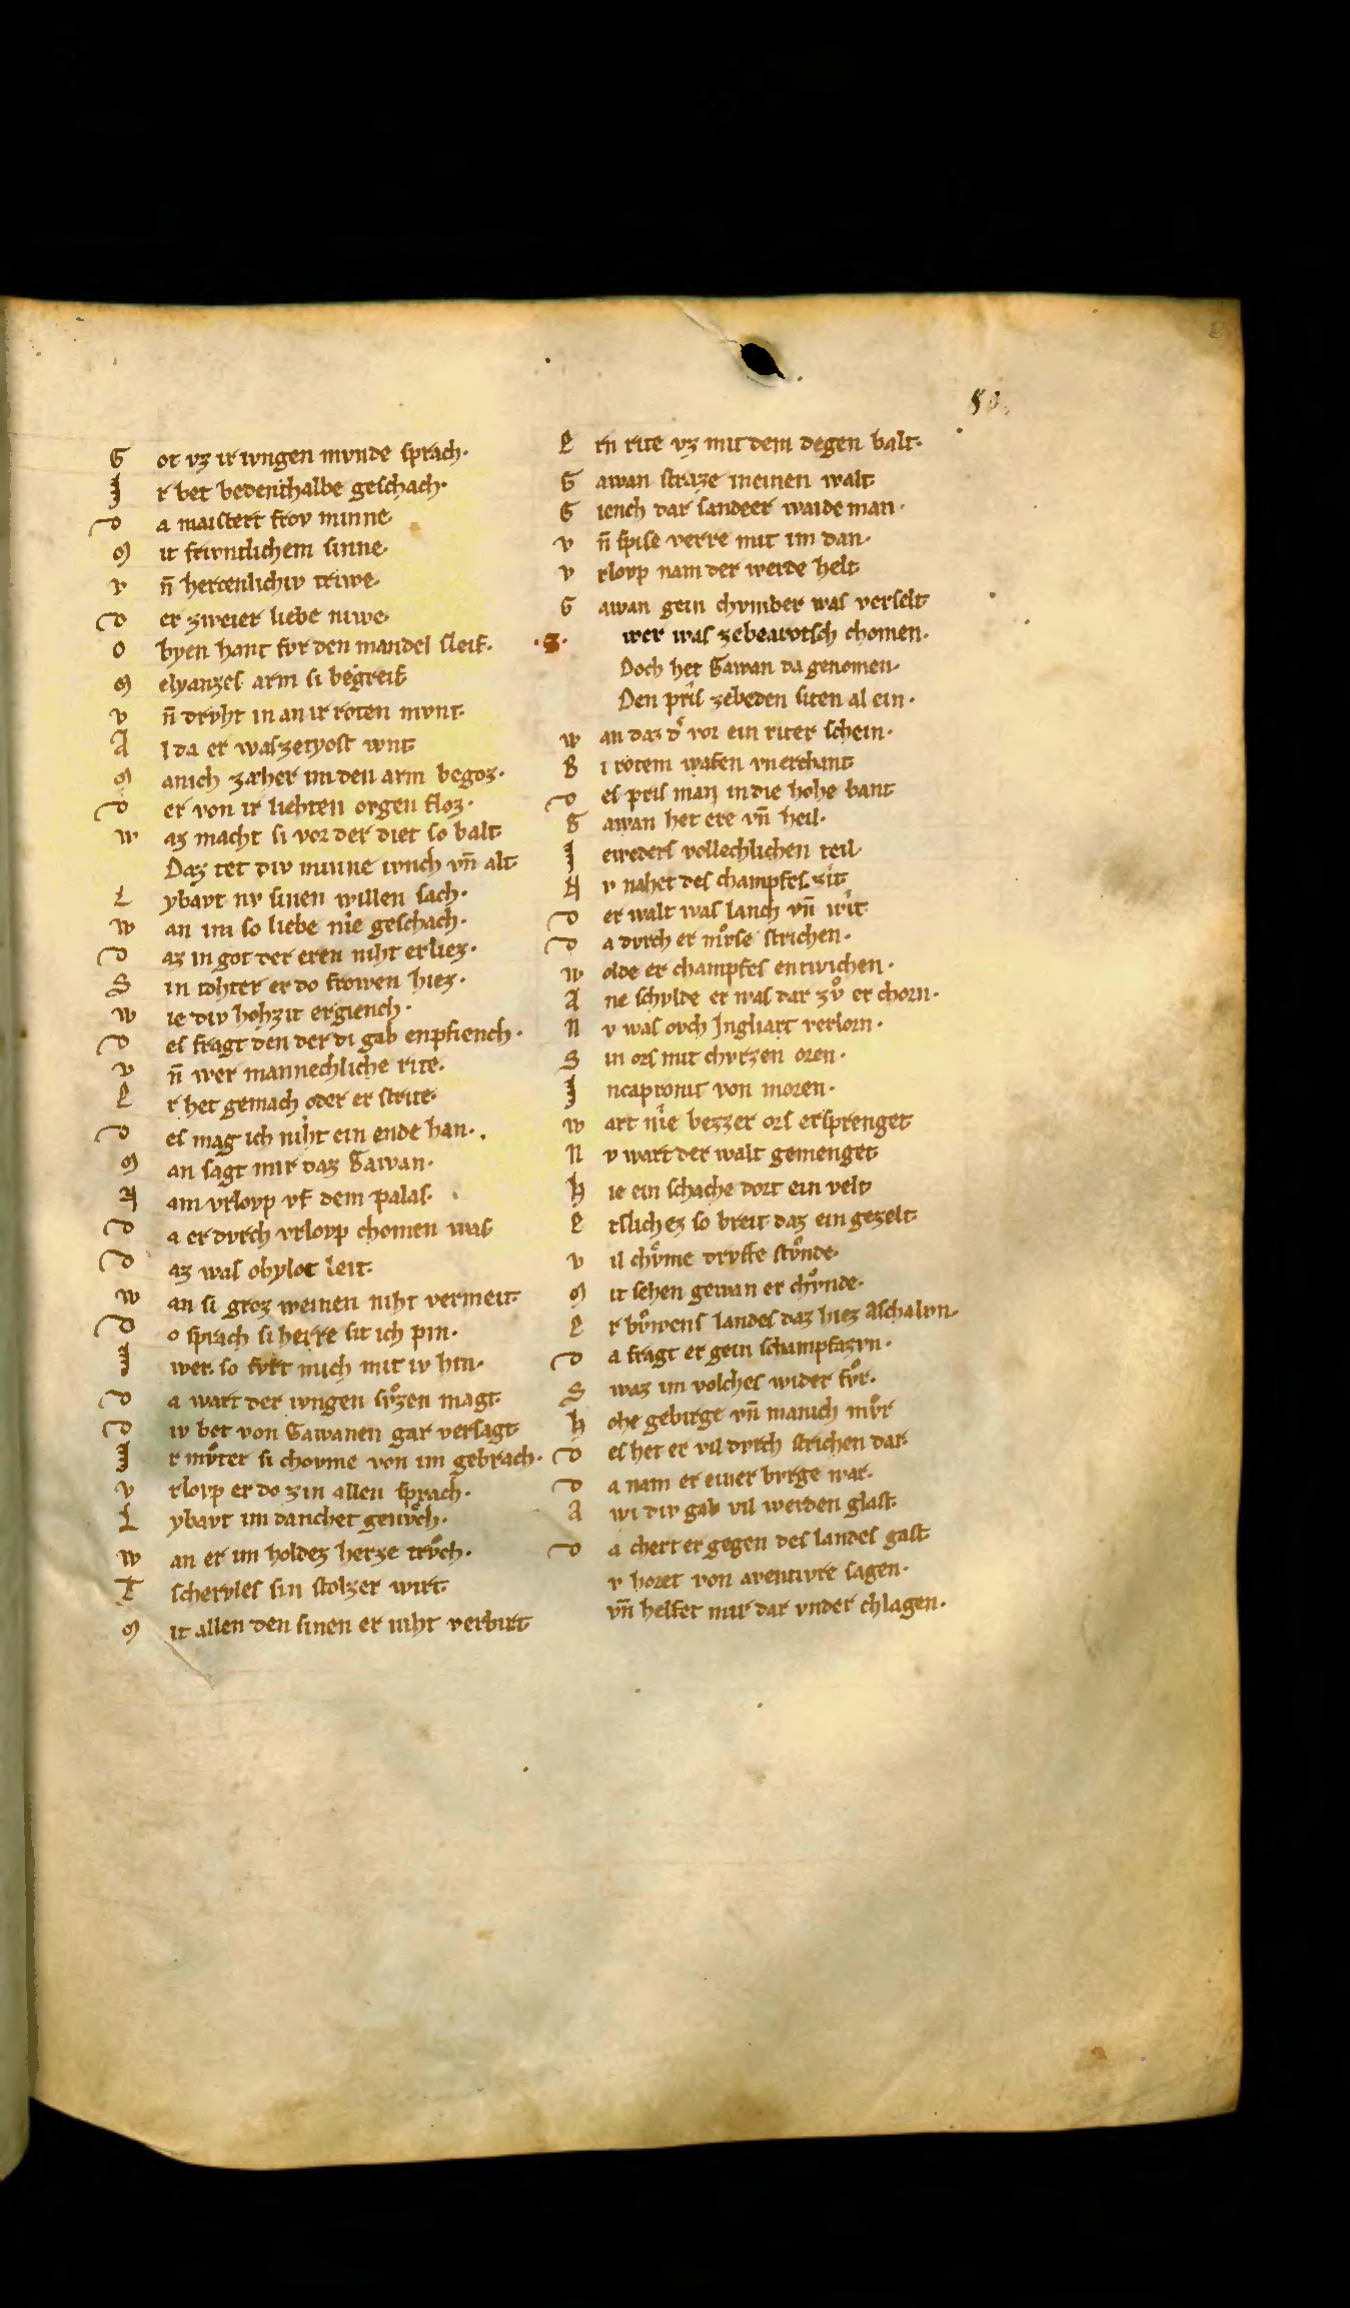 50.
G ot vz ir ivngen mvnde sprach·
I r bet bedenthalbe geschach·
D a maistert frov minne·
M it frivntlichem sinne·
v n̄ hertenlichiv triwe·
D er zweier liebe niwe·
O byen hant fvr den mandel sleif·
M elyanzes arm si begreif
v n̄ drvht in an ir roten mvnt·
A l da er was zetyost wnt
M anich zæher im den arm begoz·
D er von ir liehten ovgen floz·
w az macht si vor der diet so balt
Daz tet div minne ivnch vn̄ alt
L ybavt nv sinen willen sach·
w an im so liebe nie geschach·
D az in got der eren niht erliez·
S in tohter er do frowen hiez·
w ie div hohzit ergiench·
D es fragt den der di gab enpfiench·
v n̄ wer mannechliche rite·
E r het gemach oder er strite·
D es mag ich niht ein ende han·
M an sagt mir daz Gawan·
N am vrlovp vf dem palas·
D a er dvrch vrlovp chomen was
D az was obylot leit·
w an si groz weinen niht vermeit·
D o sprach si herre sit ich pin·
I wer. so fvrt mich mit iv hin·
D a wart der ivngen svͦzen magt·
D iv bet von Gawanen gar versagt
I r mvͦter si chovme von im gebrach·
v rlovp er do zin allen sprach·
L ybavt im danchet genvͦch·
w an er im holdez herze trvͦch·
T schervles sin stolzer wirt
M it allen den sinen er niht verbirt
E rn rite vz mit dem degen balt·
G awan straze in einen walt
G iench dar sander waideman·
v n̄ spise verre mit im dan·
v rlovp nam der werde helt
G awan gein chvmber was verselt
·S· wer was zebearotsch chomen·
Doch het Gawan da genomen·
Den pris zebeden siten al ein·
w an daz dͦ vor ein riter schein·
B i rotem wafen vnerchant
D es pris man in die hohe bant
G awan het ere vn̄ heil·
I eweders vollechlichen teil
N v nahet des champfes zit
D er walt was lanch vn̄ wit
D a dvrch er mvͦse strichen·
w olde er champfes entwichen·
A ne schvlde er was dar zvͦ er chorn·
N v was ovch Ingliart verlorn·
S in ors mit chvrzen oren·
I ncapronit von moren·
w art nie bezzer ors ersprenget
N v wart der walt gemenget
h ie ein schache dort ein velt
E tslichez so breit daz ein gezelt
v il chvͦme drvffe stvͦnde·
M it sehen gewan er chvͦnde·
E r bvͦwens landes daz hiez Aschalvn·
D a fragt er gein schampfazvn·
S waz im volches wider fvͦr·
h ohe gebirge vn̄ manich mvͦr
D es het er vil dvrch strichen dar·
D a nam er einer bvrge war·
A wi div gab vil werden glast
D a chert er gegen des landes gast
v horet von aventivre sagen·
vn̄ helfet mir dar vnder chlagen·